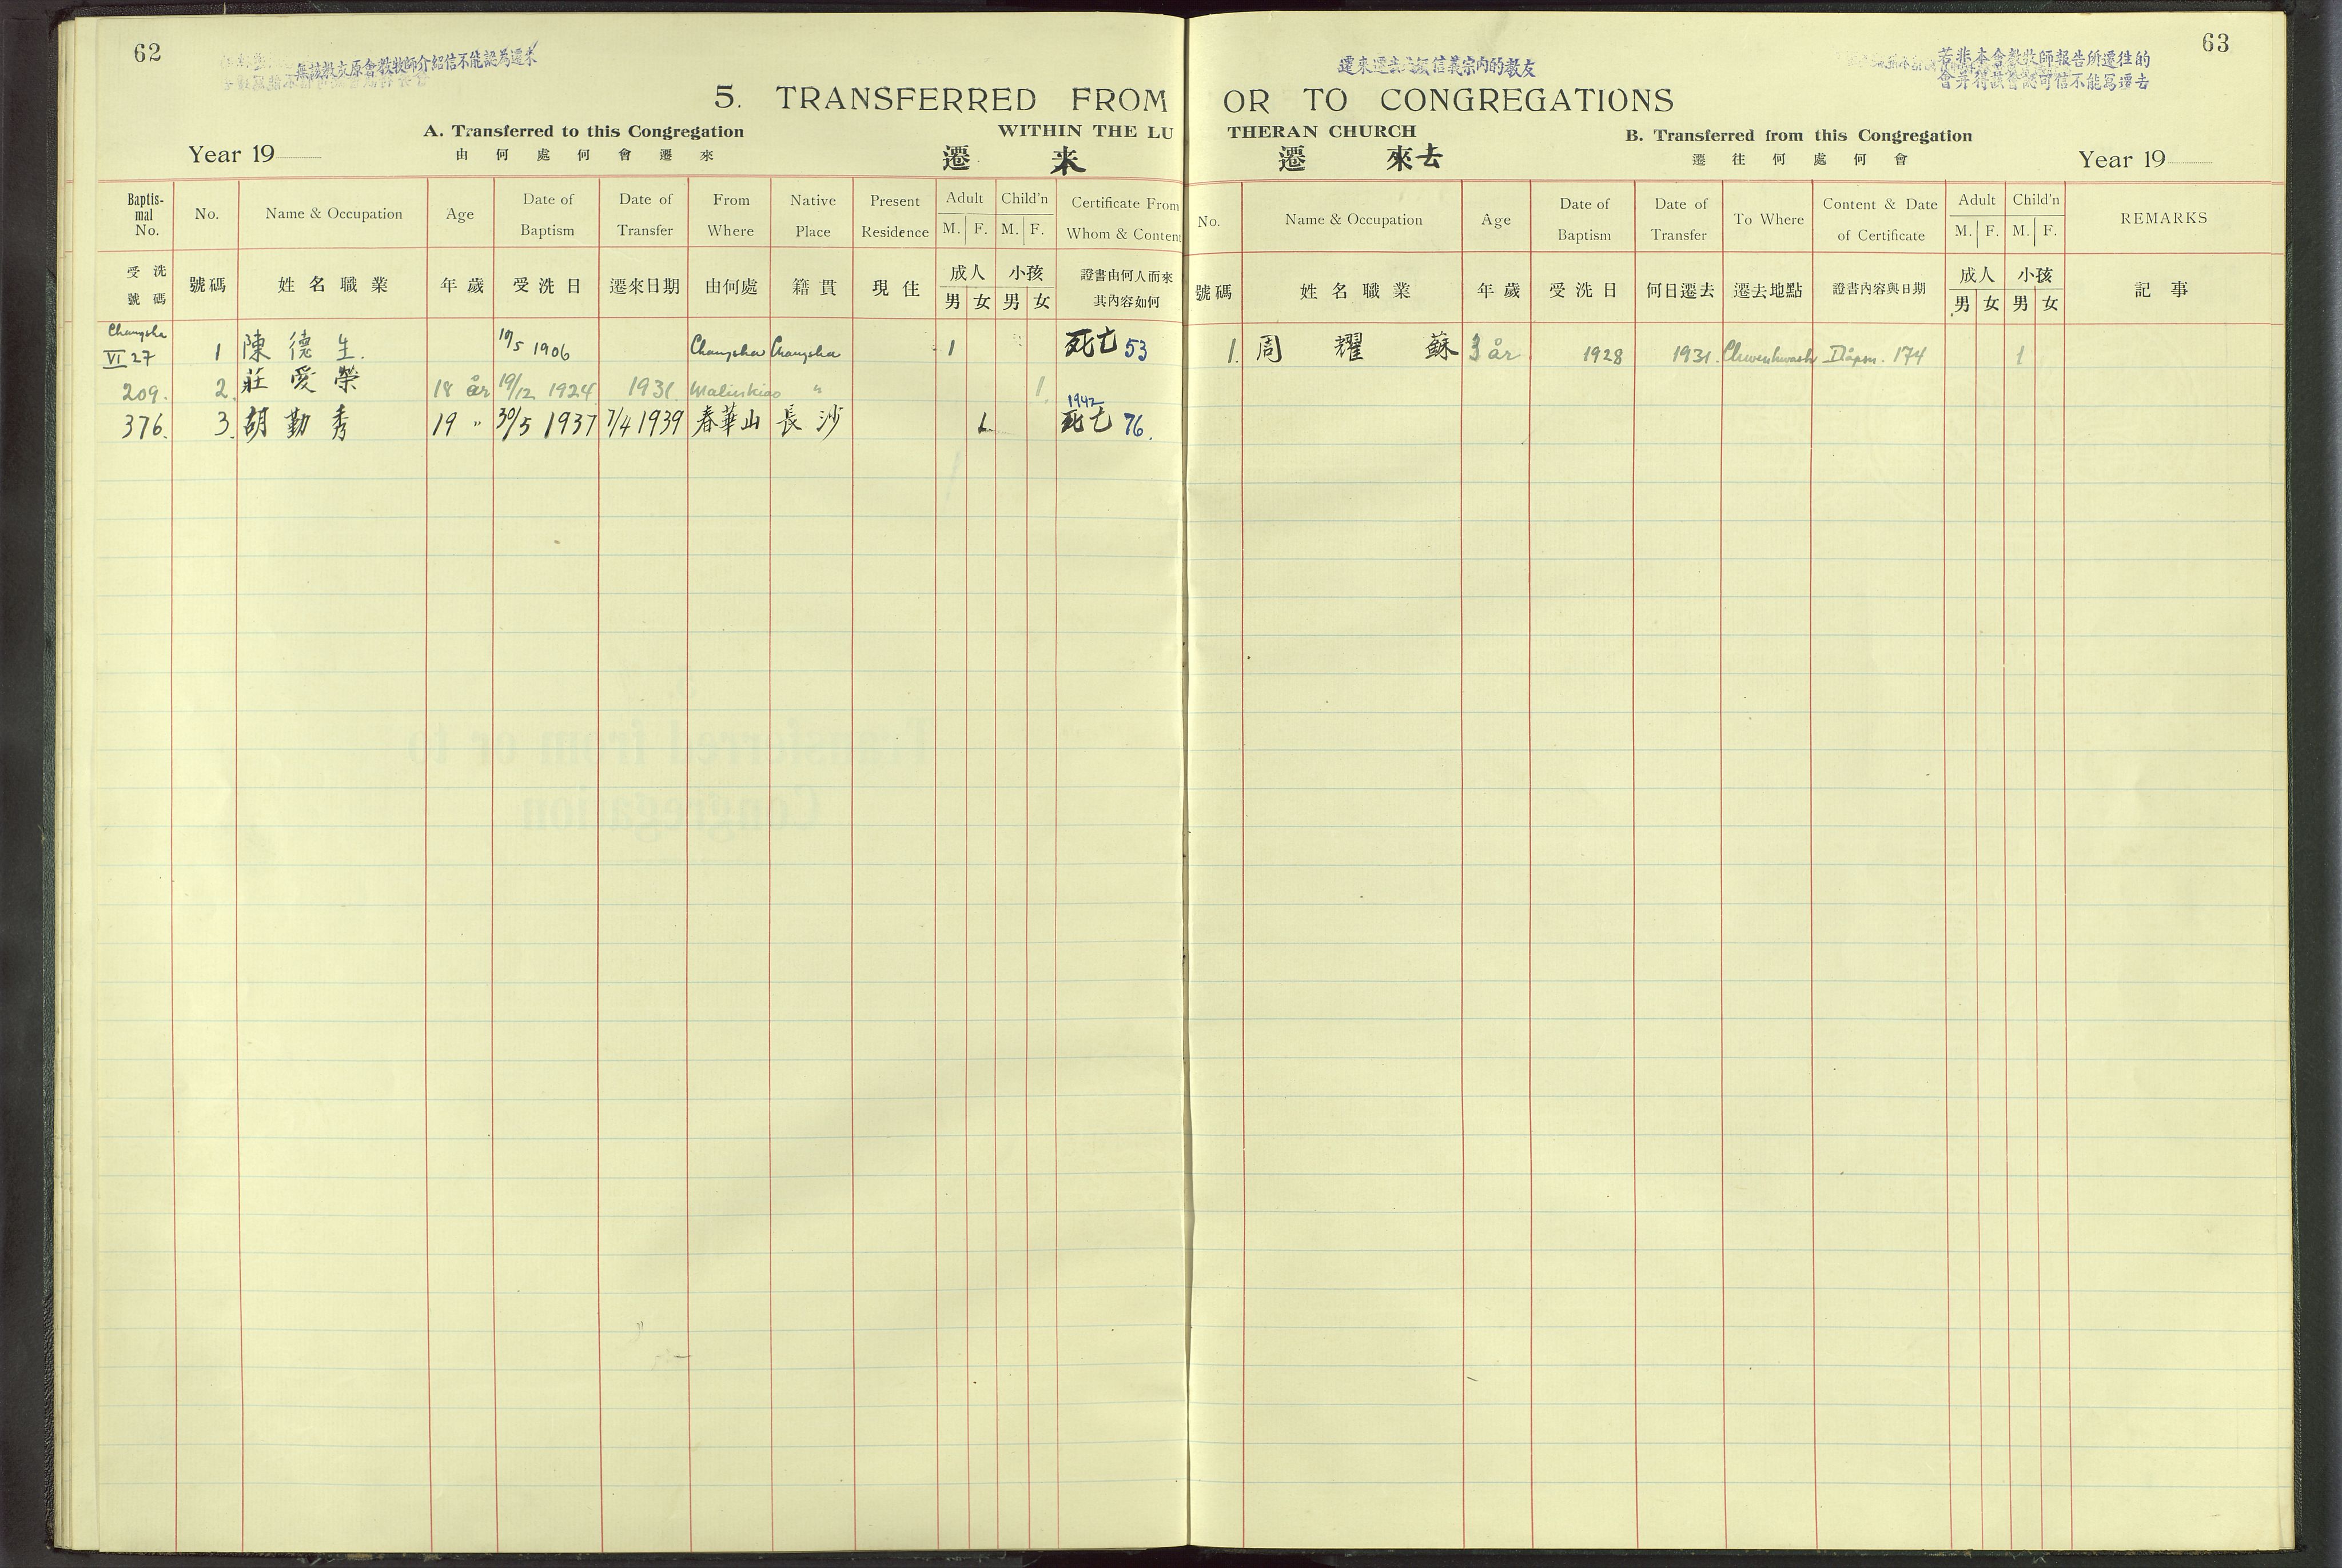 62
無該教友原會教牧師介紹信不能認為遷來
5. TRANSFERRED FROM
A. Transferred to this Congregation
WITHIN THE LU
Year 19
由何處何會遷來
遷 来
Baptismal No.
No.
Name & Occupation
Age
Date of Baptism
Date of Transfer
From Where
Native Place
Present Residence
Adult
M. F.
Child'n
M. F.
Certificate From Whom & Content
受洗號碼
號碼
姓名職業
年歲
受洗日
遷來日期
由何處
籍貫
現住
成人
男 女
小孩
男 女
證書由何人而來其內容如何
Changsha VI 27 1 陳德生. 17/5 1906 Changsha Changsha 1 死亡 53
209. 2. 莊愛榮 18 år 19/12 1924 1931. Malinkiao " 1.
376. 3. 胡勤秀 19 " 30/5 1937 7/4 1939 春華山 長沙 1 1942 死亡 76.
63
遷來遷去 信義宗內的教友
若非本會教牧師報告所遷往的
OR TO CONGREGATIONS
THERAN CHURCH
B. Transferred from this Congregation
遷 來去
遷往何處何會
Year 19
No.
Name & Occupation
Age
Date of Baptism
Date of Transfer
To Where
Content & Date of Certificate
Adult
M. F.
Child'n
M. F.
REMARKS
號碼
姓名職業
年歲
受洗日
何日遷去
遷去地點
證書內容與日期
成人
男 女
小孩
男 女
記事
1. 周耀蘇 3 år 1928 1931. 174 1